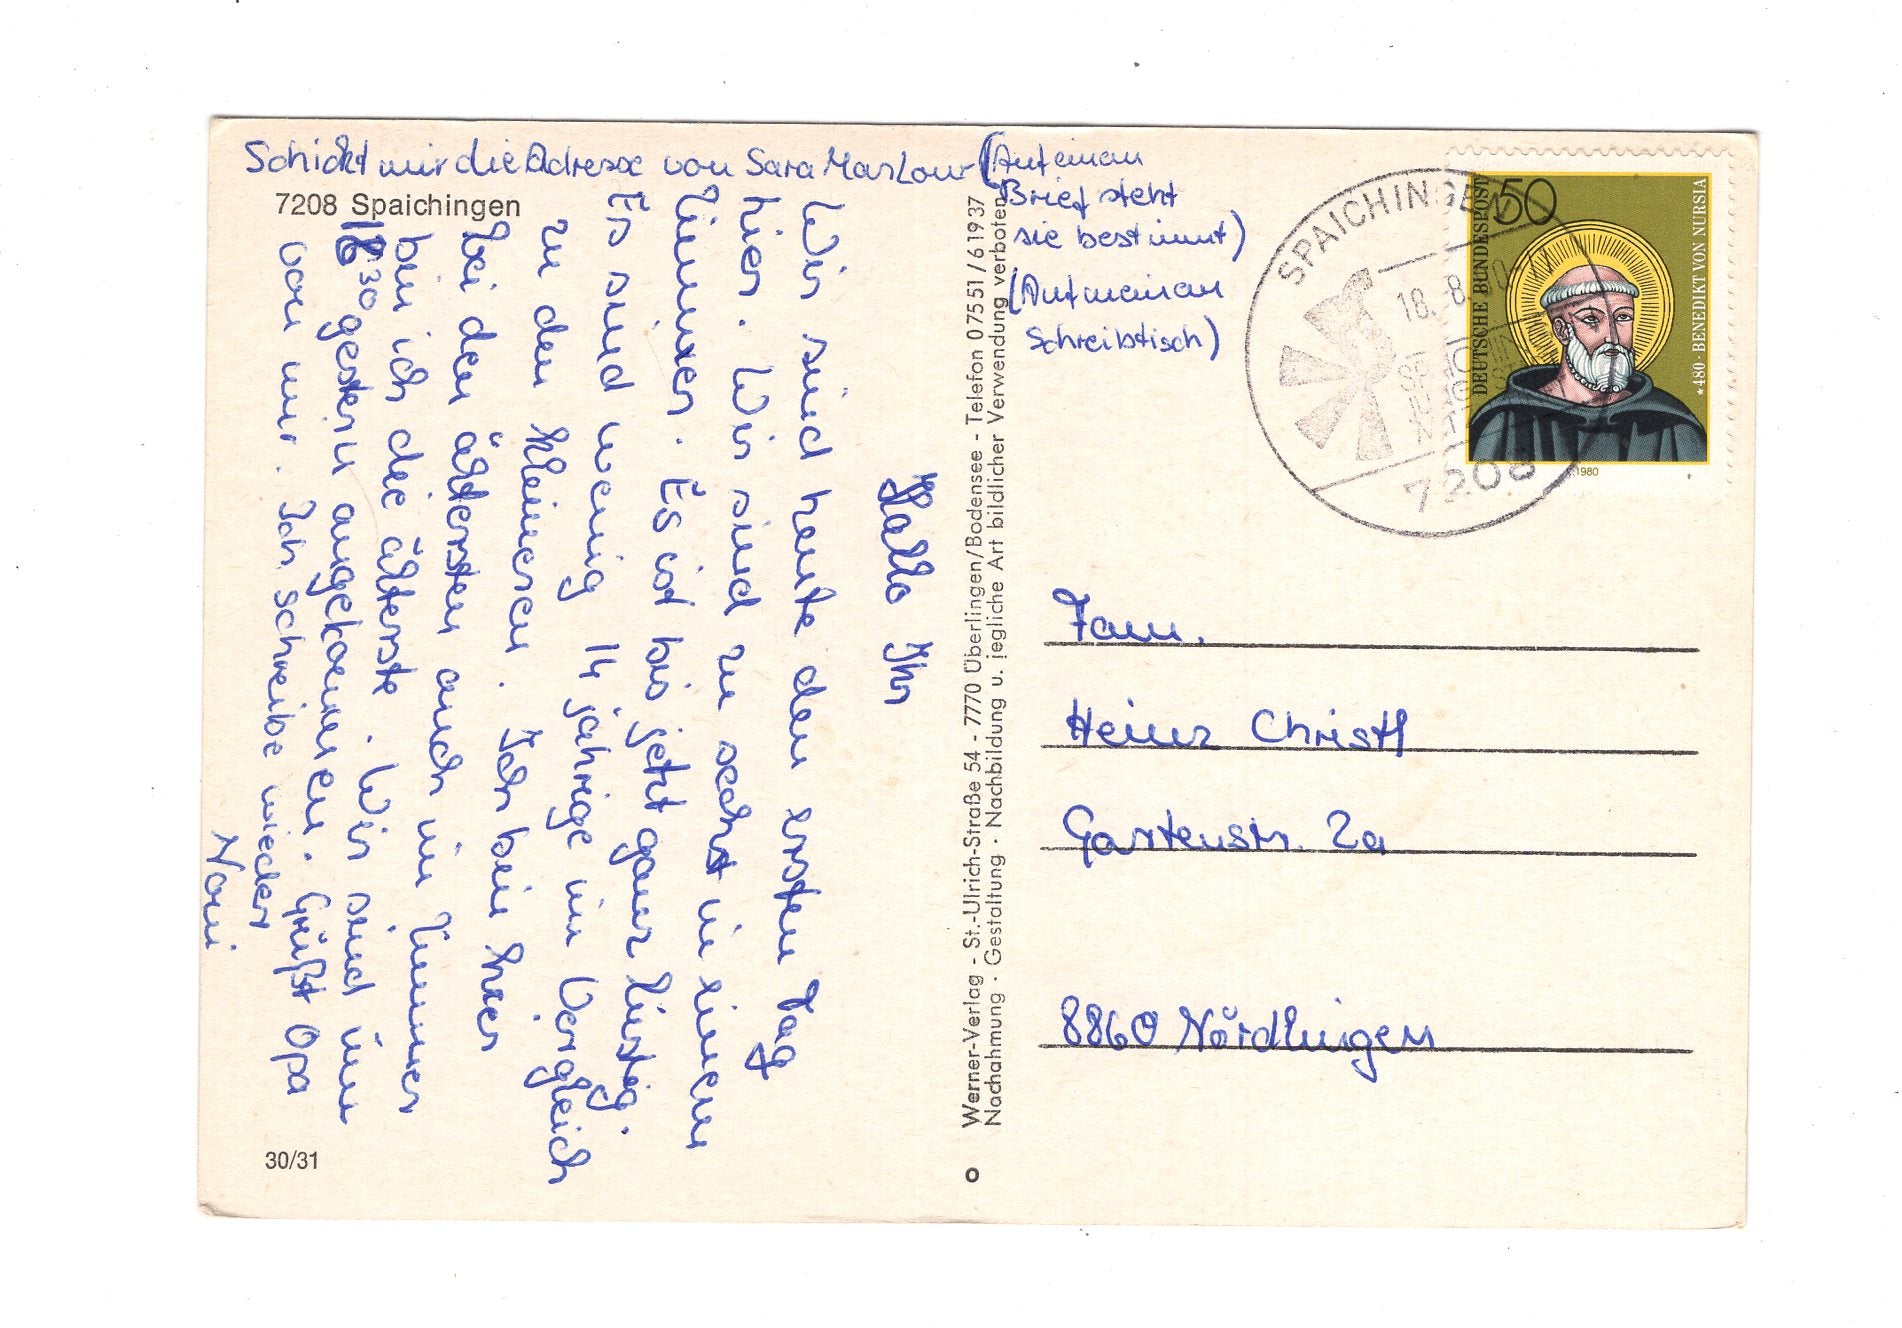 Schickt mir die Adresse von Sara Marlour (Auf einem
Brief steht
sie bestimmt)
(Auf meinem
Schreibtisch)
7208 Spaichingen
Hallo Ihr
Wir sind heute den ersten Tag
hier. Wir sind zu sechst in einem
Zimmer. Es ist bis jetzt ganz lustig.
Es sind wenig 14 jährige im Vergleich
zu den kleineren. Ich bin hier
bei den ältersten auch im Zimmer
bin ich die älterste. Wir sind um
18³⁰ gestern angekommen. Grüßt Opa
von mir. Ich schreibe wieder
Noni
30/31
Werner-Verlag - St.-Ulrich-Straße 54 - 7770 Überlingen/Bodensee - Telefon 07551/61937
Nachahmung · Gestaltung · Nachbildung u. jegliche Art bildlicher Verwendung verboten
SPAICHINGEN
18. 8. 80
7208
50
DEUTSCHE BUNDESPOST
* 480 · BENEDIKT VON NURSIA
1980
Fam.
Heinz Christl
Gartenstr. 2a
8860 Nördlingen